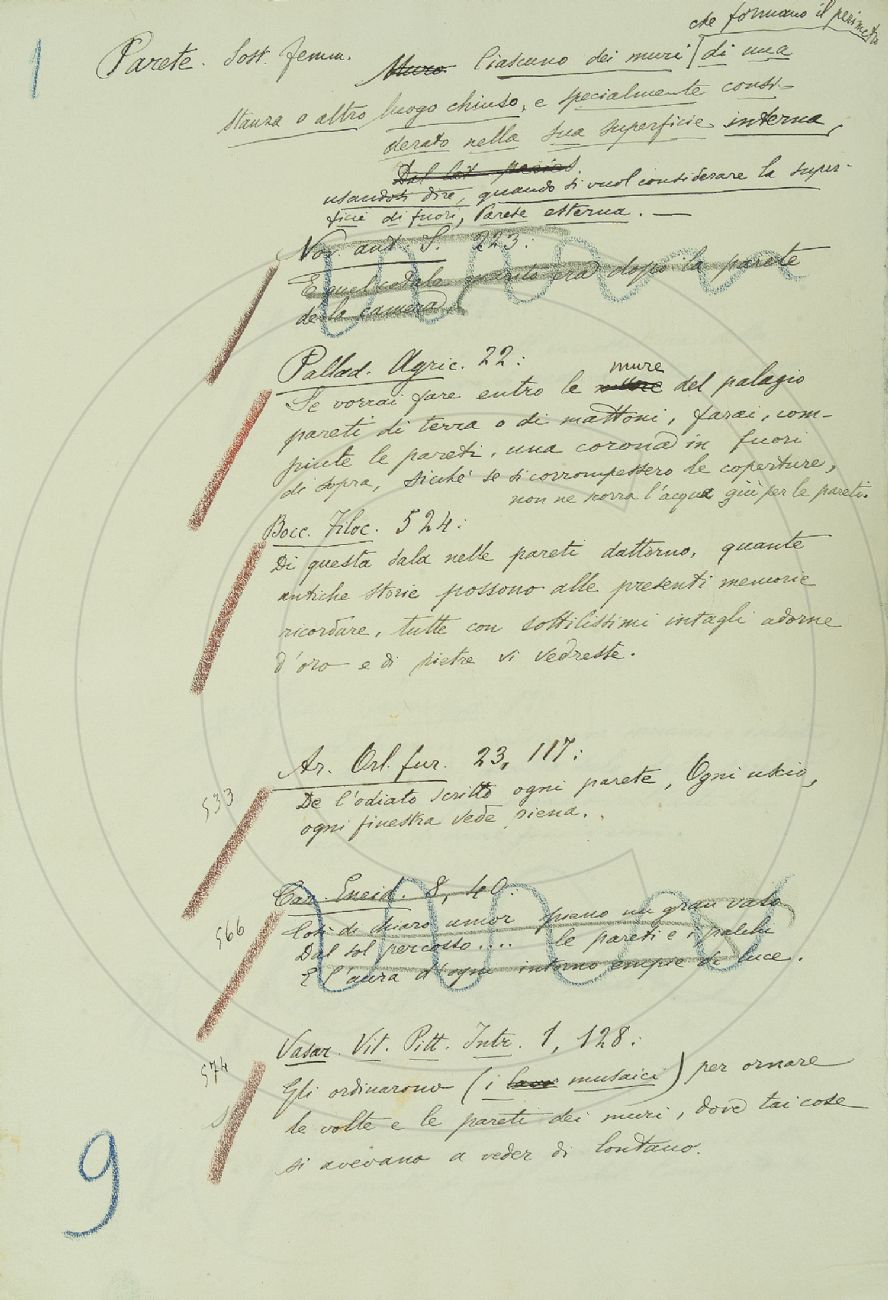 che formano il perimetro
1
Parete. Sost. femm. Muro Ciascuno dei muri di una
stanza o altro luogo chiuso, e specialmente consi-
derato nella sua superficie interna,
Dal lat. paries
usandosi dire, quando si vuol considerare la super-
ficie di fuori, Parete esterna. —
Nov. ant. S. 223:
E quel cotale marito era dopo la parete
della camera.
Pallad. Agric. 22:
mure
Se vorrai fare entro le del palagio
pareti di terra o di mattoni, farai, com-
piute le pareti, una corona in fuori
di sopra, sicché se si corrompessero le coperture,
non ne scorra l'acqua giù per le pareti.
Bocc. Filoc. 524:
Di questa sala nelle pareti dattorno, quante
antiche storie possono alle presenti memorie
ricordare, tutte con sottilissimi intagli adorne
d'oro e di pietre vi vedreste.
Ar. Orl. fur. 23, 117:
533
De l'odiato scritto ogni parete, Ogni uscio,
ogni finestra vede piena.
Car. Eneid. 8, 40.
566
Così di chiaro umor pieno un gran vaso
Dal sol percosso.... le pareti e i palchi
E l'aura d'ogni intorno empie di luce.
Vasar. Vit. Pitt. Intr. 1, 128:
574
Gli ordinarono (i musaici) per ornare
le volte e le pareti dei muri, dove tai cose
si avevano a veder di lontano.
9